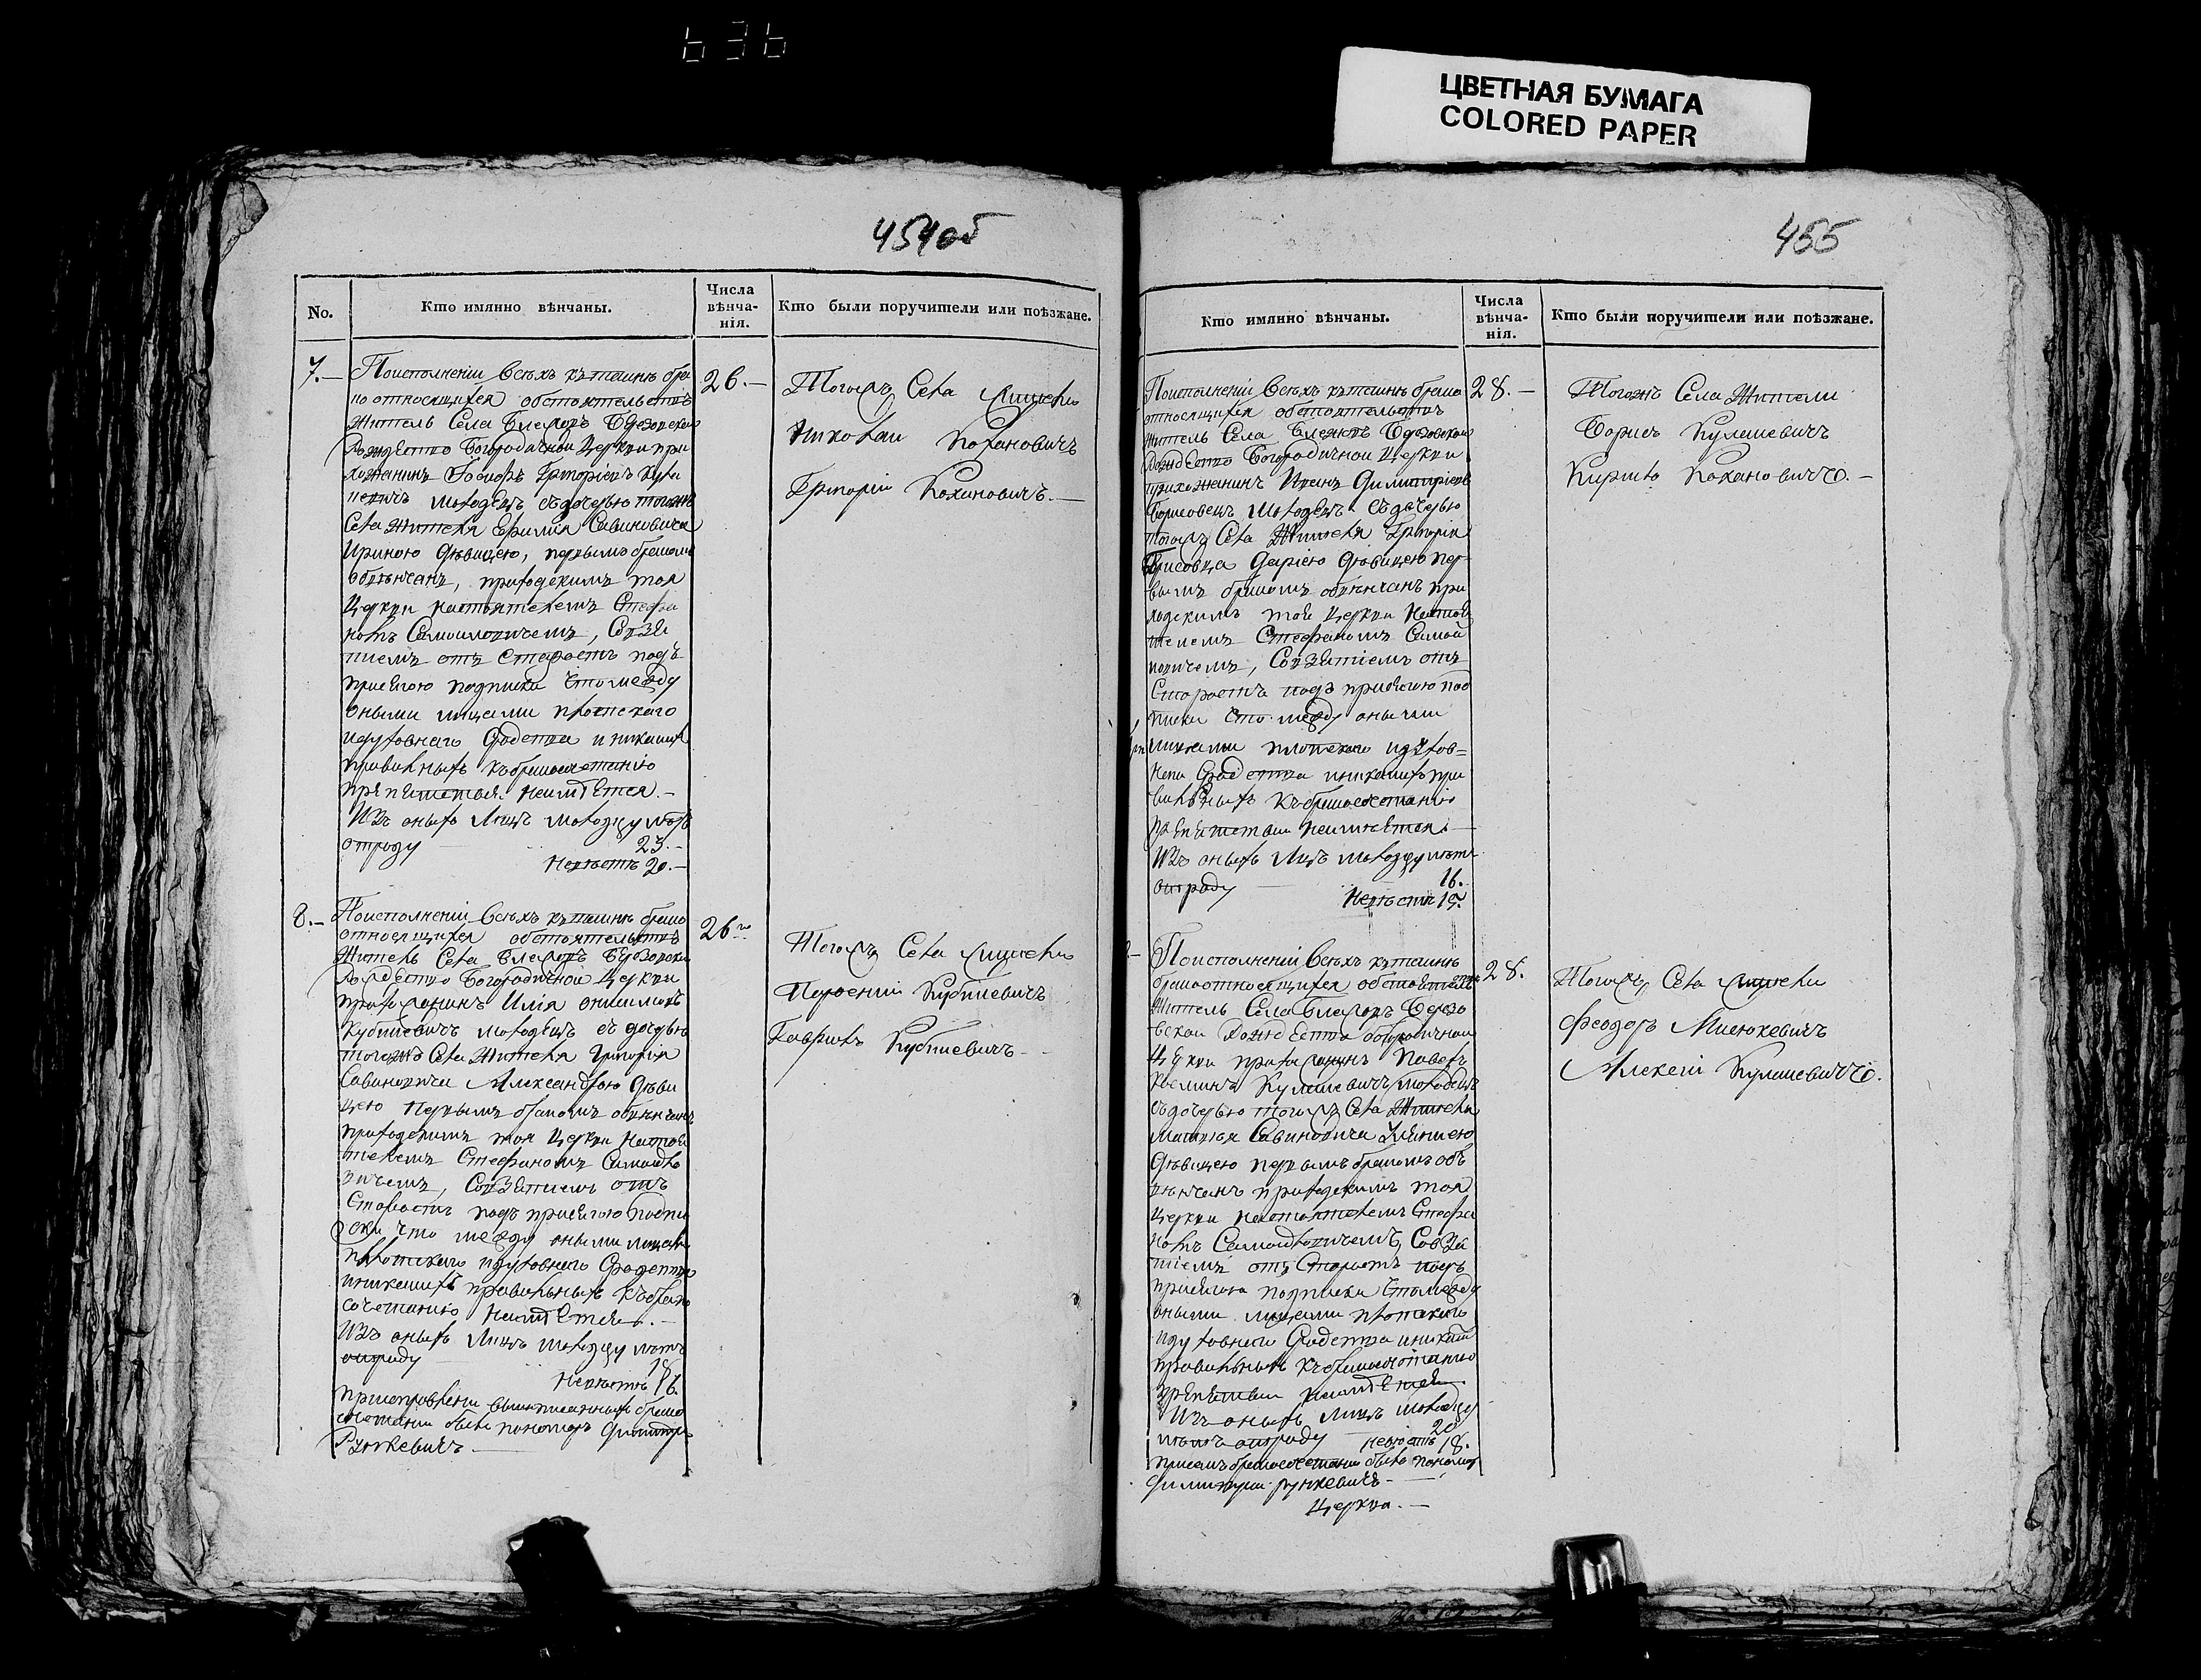 636
ЦВЕТНАЯ БУМАГА
COLORED PAPER
454об
No.
Кто имянно вѣнчаны.
Числа вѣнча-
нія.
Кто были поручители или поѣзжане.
7.—
Поисполненіи всѣхъ къ таинѣ бра
но относящихся обстоятельствъ
Житель Села
Рождество Богородичной Церкви при
хожанинъ Григоріевъ
молодецъ съ дочерью тогожъ
Села Жителя Савиновича
Ириною дѣвицею, первымъ бракомъ
обвѣнчанъ, приходскимъ тоя
Церкви настоятелемъ Стефа
номъ Самойловичемъ, Совзя
тиемъ отъ Старостъ подъ
присягою подписки что между
оными лицами плотскаго
идуховнаго Сродства и никакихъ
правильныхъ къ бракосочетанію
препятствія неимѣется.—
Изъ оныхъ Лицъ молодцу лѣтъ
отроду 23.—
Невѣстѣ 20.—
26.—
Тогожъ Села Жители
Николай Кохановичъ
Григорій Кохановичъ.—
8.—
Поисполненіи всѣхъ къ таинѣ брако
относящихся обстоятельствъ
Житель Села
Рождество Богородичной Церкви
прихожанинъ Илія Онисимовъ
Кубышевичъ молодецъ съ дочерью
тогожъ Села Жителя Григорія
Савиновича Александрою дѣви
цею первымъ бракомъ обвѣнчанъ
приходскимъ тоя Церкви Настоя
телемъ Стефаномъ Самойло
вичемъ, Совзятиемъ отъ
Старостъ подъ присягою подпи
ски что между оными лицами
плотскаго идуховнаго Сродства
иникакихъ правильныхъ къ брако
сочетанію неимѣется.—
Изъ оныхъ Лицъ молодцу лѣтъ
отроду 18
Невѣстѣ 16.
приисправленіи вышеписанныхъ брако
сочетаніи былъ пономарь Димитрій
Рункевичъ.—
26го
Тогожъ Села Жители
Парфеній Кубышевичъ
Гавріилъ Кубышевичъ.—
455
Кто имянно вѣнчаны.
Числа
вѣнча-
нія.
Кто были поручители или поѣзжане.
Поисполненіи всѣхъ къ таинѣ брако
относящихся обстоятельствъ
Житель Села
Рождество Богородичной Церкви
прихожанинъ Иванъ Димитріевъ
Борисовецъ молодецъ съ дочерью
тогожъ Села Жителя Григорія
Борисовца Даріею дѣвицею пер-
вымъ бракомъ обвѣнчанъ при
ходскимъ тоя Церкви Настоя
телемъ Стефаномъ Самой
ловичемъ, Совзятіемъ отъ
Старостъ подъ присягою под
писки что между оными
лицами плотскаго идухов-
наго Сродства иникакихъ пра
вильныхъ къ бракосочетанію
препятствіи неимѣется.—
Изъ оныхъ Лицъ молодцу лѣтъ
отроду 16.
Невѣстѣ 15.
28.—
Тогожъ Села Жители
Борисъ Кулашевичъ
Кирило Кохановичъ.—
Поисполненіи всѣхъ къ таинѣ
брако относящихся обстоятельствъ
Житель Села
Рождество Богородичной
Церкви прихожанинъ Павелъ
Кулашевичъ молодецъ
съ дочерью тогожъ Села Жителя
Савиновича
дѣвицею первымъ бракомъ об
вѣнчанъ приходскимъ тоя
Церкви Настоятелемъ Стефа
номъ Самойловичемъ, Совзя
тіемъ отъ Старостъ подъ
присягою подписки что между
оными лицами плотскаго
идуховнаго Сродства иникакихъ
правильныхъ къ бракосочетанію
препятствіи неимѣется
Изъ оныхъ Лицъ молодцу
лѣтъ отроду 20
невѣстѣ 18.
присемъ бракосочетаніи былъ пономарь
Димитрій Рункевичъ.—
Церкви.—
28.
Тогожъ Села Жители
Феодоръ Мисюкевичъ
Алексій Кулашевичъ.